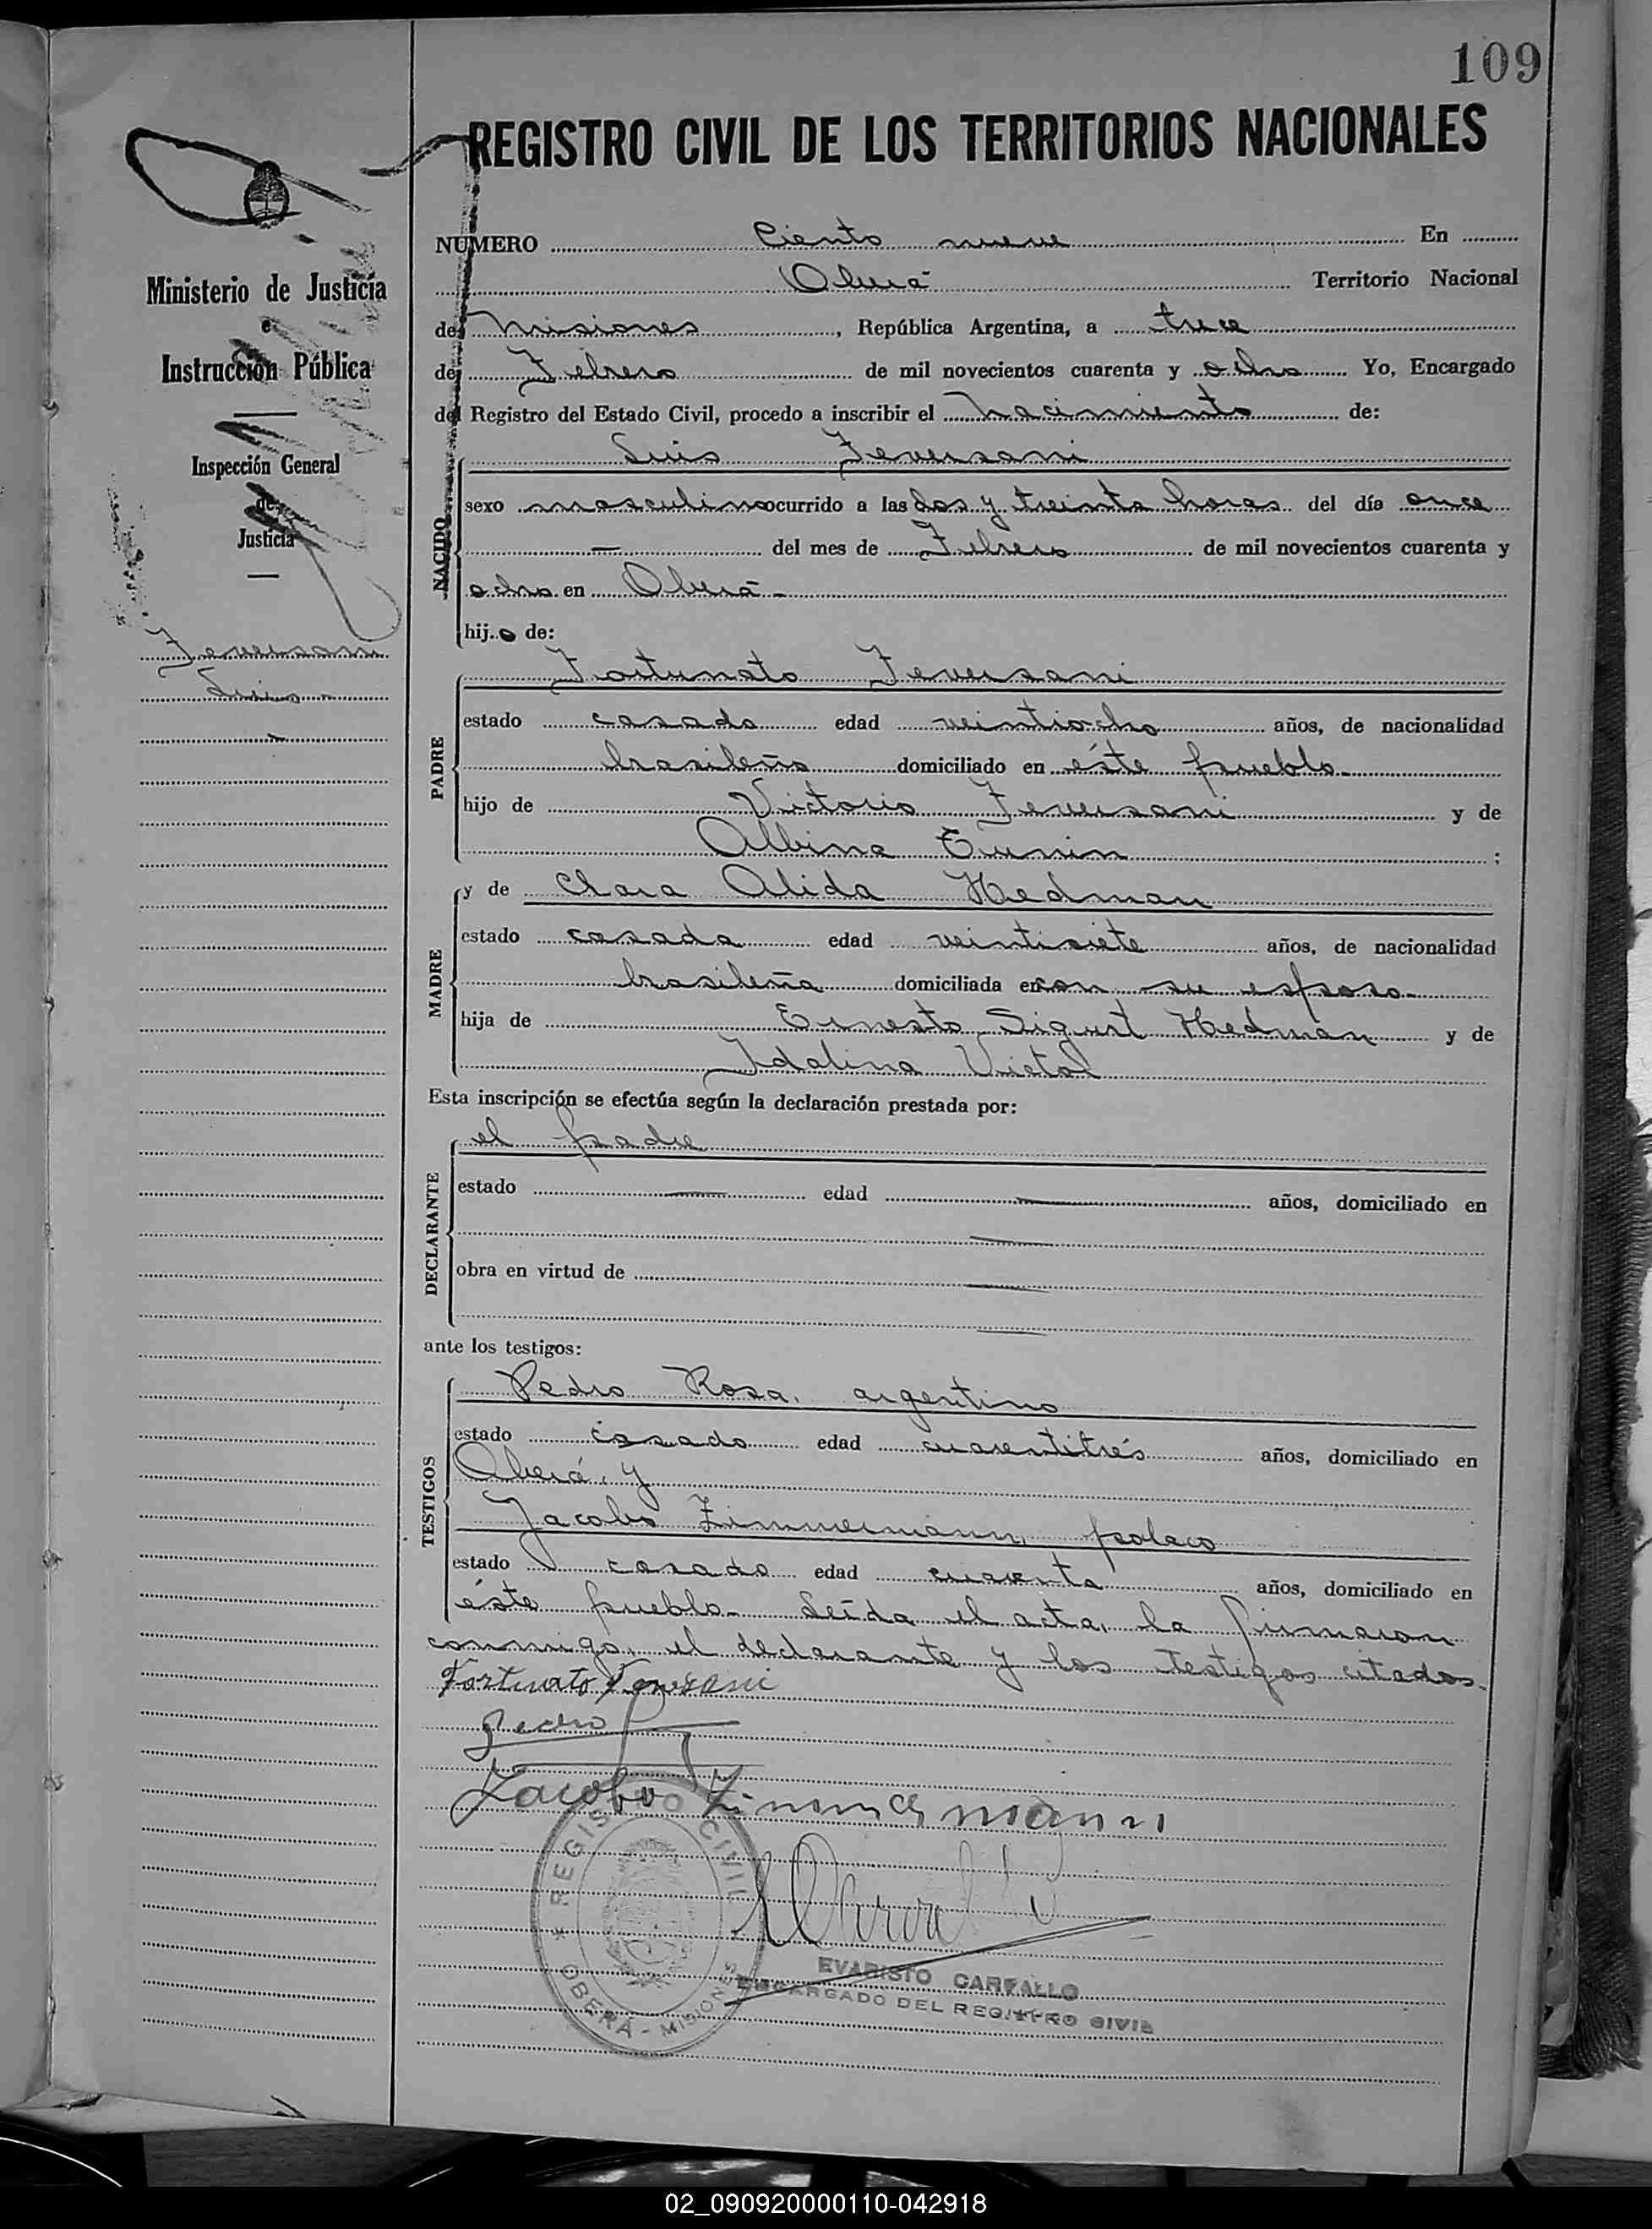 109
REGISTRO CIVIL DE LOS TERRITORIOS NACIONALES
Ministerio de Justicia
e
Instrucción Pública
Inspección General
de
Justicia
Feversani
Luis
NUMERO Ciento nueve En
Oberá Territorio Nacional
de Misiones, República Argentina, a trece
de Febrero de mil novecientos cuarenta y ocho Yo, Encargado
del Registro del Estado Civil, procedo a inscribir el nacimiento de:
Luis Feversani
NACIDO
sexo masculino ocurrido a las dos y treinta horas del día once
— del mes de Febrero de mil novecientos cuarenta y
ocho en Oberá -
hijo de:
Fortunato Feversani
PADRE
estado casado edad veintiocho años, de nacionalidad
brasileño domiciliado en éste pueblo -
hijo de Victorio Feversani y de
Albina ;
y de Clara Alida Hedman
MADRE
estado casada edad veintisiete años, de nacionalidad
brasileña domiciliada en con su esposo -
hija de Ernesto Sigurt Hedman y de
Idalina
Esta inscripción se efectúa según la declaración prestada por:
el padre
DECLARANTE
estado — edad — años, domiciliado en
—
obra en virtud de —
—
ante los testigos:
Pedro Rosa, argentino
TESTIGOS
estado casado edad cuarentitrés años, domiciliado en
Oberá, y
Jacobo Zimmermann, polaco
estado casado edad cuarenta años, domiciliado en
éste pueblo - Leída el acta, la firmaron
conmigo, el declarante y los testigos citados -
Fortunato Feversani
Pedro
Jacobo Zimmermann
REGISTRO CIVIL
OBERÁ - MISIONES
EVARISTO CARVALLO
ENCARGADO DEL REGISTRO CIVIL
02_090920000110-042918